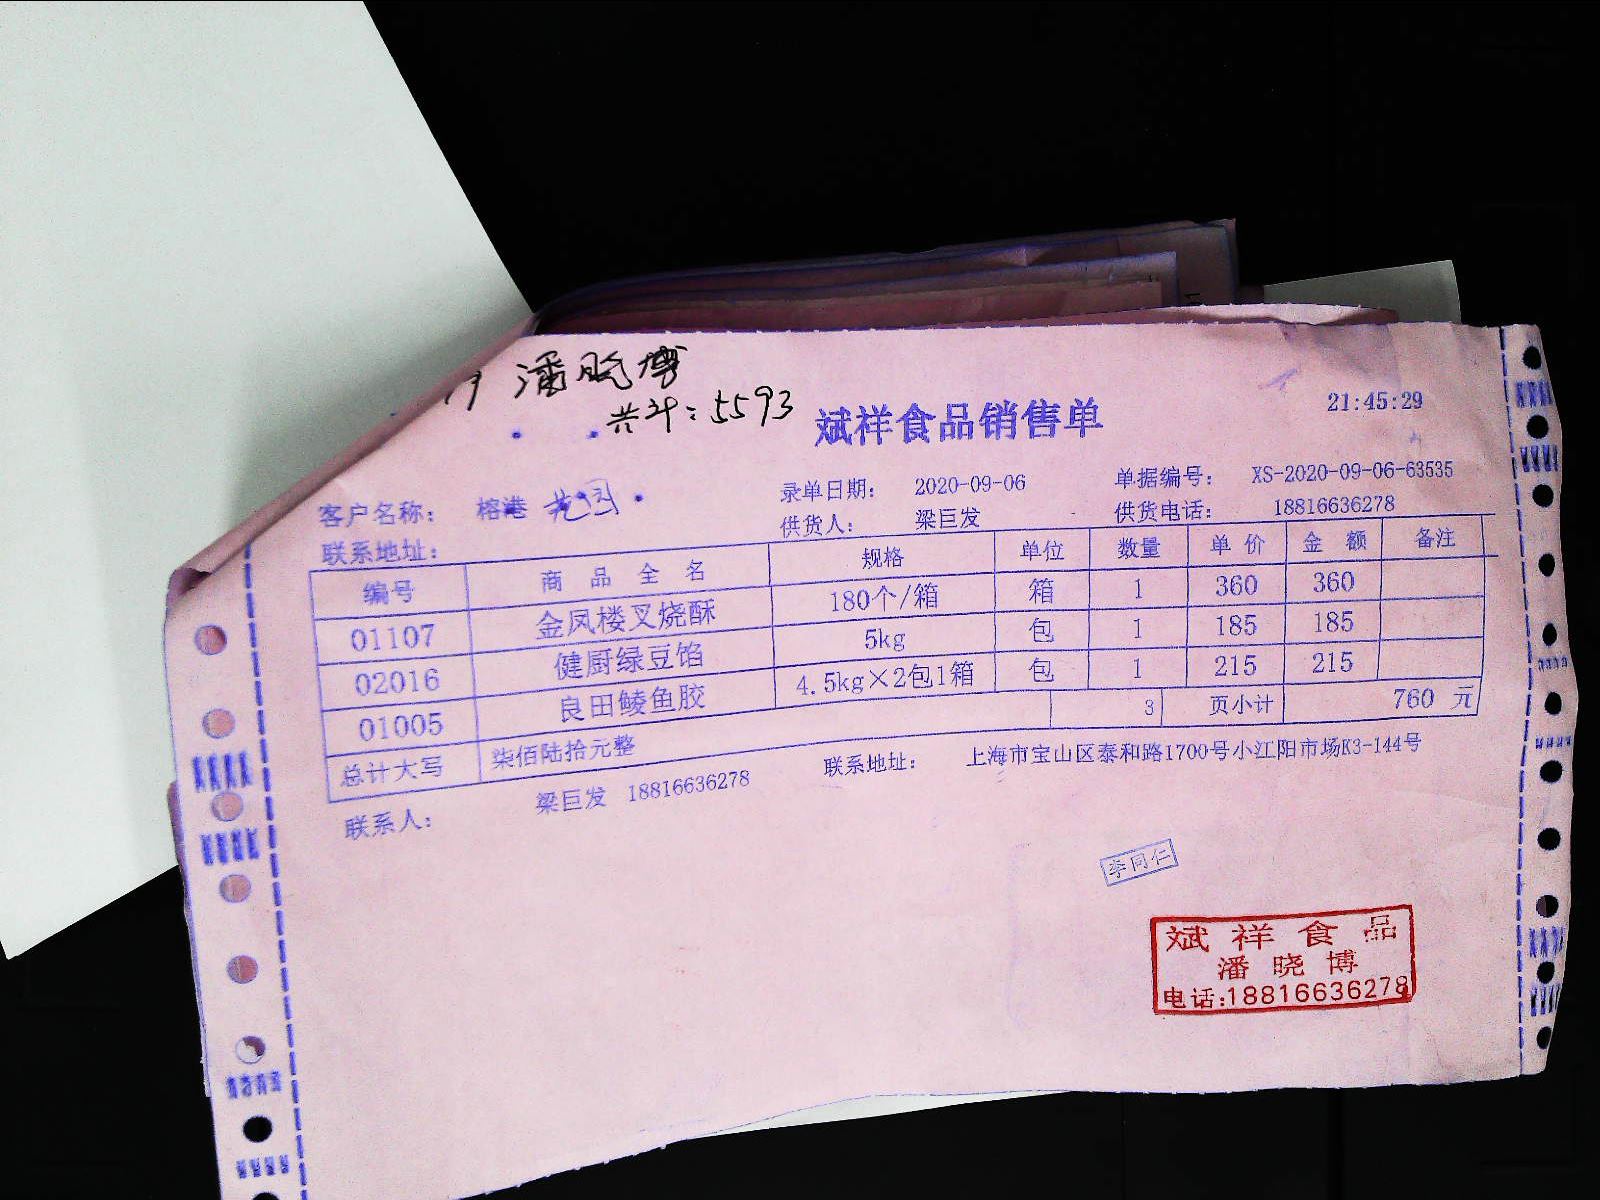 潘晓博
共计:5593
斌祥食品销售单
21:45:29
客户名称: 榕港 录单日期: 2020-09-06 单据编号: XS-2020-09-06-63535
联系地址: 供货人: 梁巨发 供货电话: 18816636278
编号 商品全名 规格 单位 数量 单价 金额 备注
01107 金凤楼叉烧酥 180个/箱 箱 1 360 360
02016 健厨绿豆馅 5kg 包 1 185 185
01005 良田鲮鱼胶 4.5kg×2包1箱 包 1 215 215
总计大写 柒佰陆拾元整 3 页小计 760 元
联系人: 梁巨发 18816636278 联系地址: 上海市宝山区泰和路1700号小江阳市场K3-144号
李同仁
斌祥食品
潘晓博
电话:18816636278